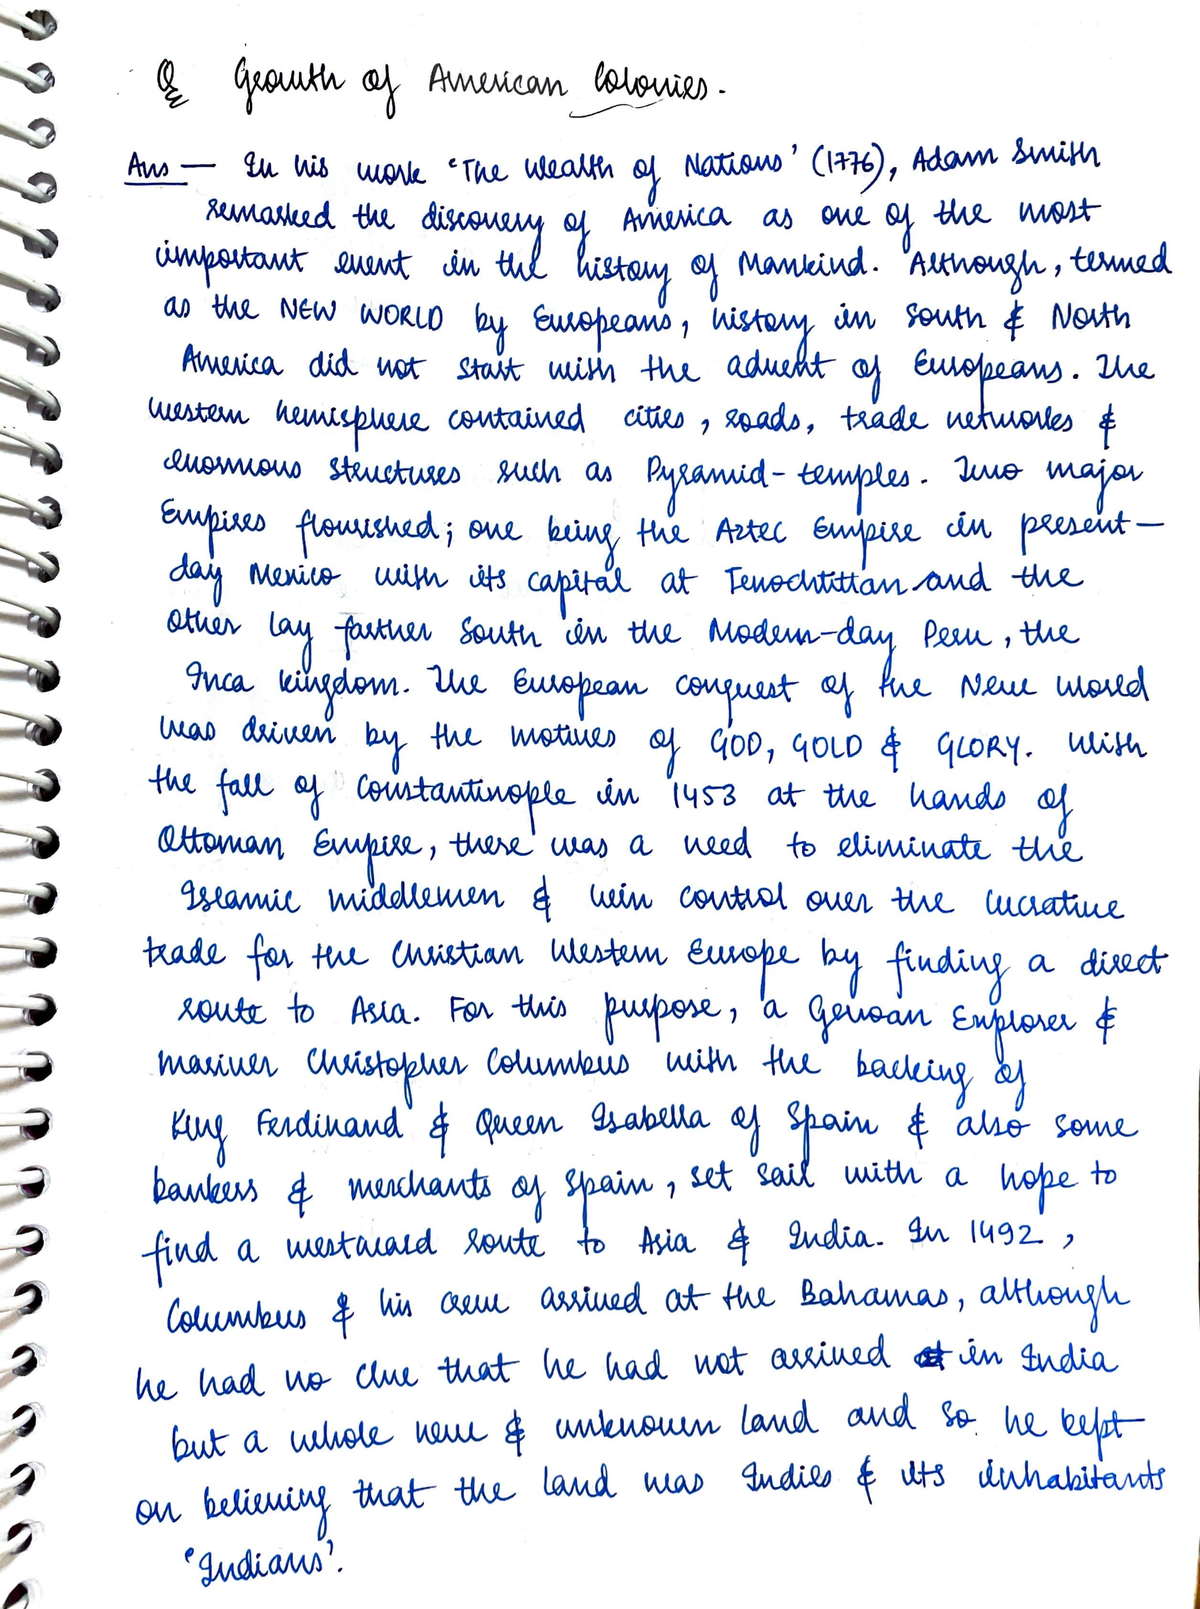 Q Growth of American Colonies.
Ans — In his work 'The Wealth of Nations' (1776), Adam Smith
remarked the discovery of America as one of the most
important event in the history of Mankind. Although, termed
as the NEW WORLD by Europeans, history in South & North
America did not start with the advent of Europeans. The
western hemisphere contained cities, roads, trade networks &
enormous structures such as Pyramid-temples. Two major
Empires flourished; one being the Aztec Empire in present-
day Mexico with its capital at Tenochtittlan and the
other lay farther South in the Modern-day Peru, the
Inca kingdom. The European conquest of the New World
was driven by the motives of GOD, GOLD & GLORY. With
the fall of Constantinople in 1453 at the hands of
Ottoman Empire, there was a need to eliminate the
Islamic middlemen & win control over the lucrative
trade for the Christian Western Europe by finding a direct
route to Asia. For this purpose, a Genoan Explorer &
mariner Christopher Columbus with the backing of
King Ferdinand & Queen Isabella of Spain & also some
bankers & merchants of Spain, set sail with a hope to
find a westward route to Asia & India. In 1492,
Columbus & his crew arrived at the Bahamas, although
he had no clue that he had not arrived in India
but a whole new & unknown land and so he kept
on believing that the land was Indies & its inhabitants
'Indians'.